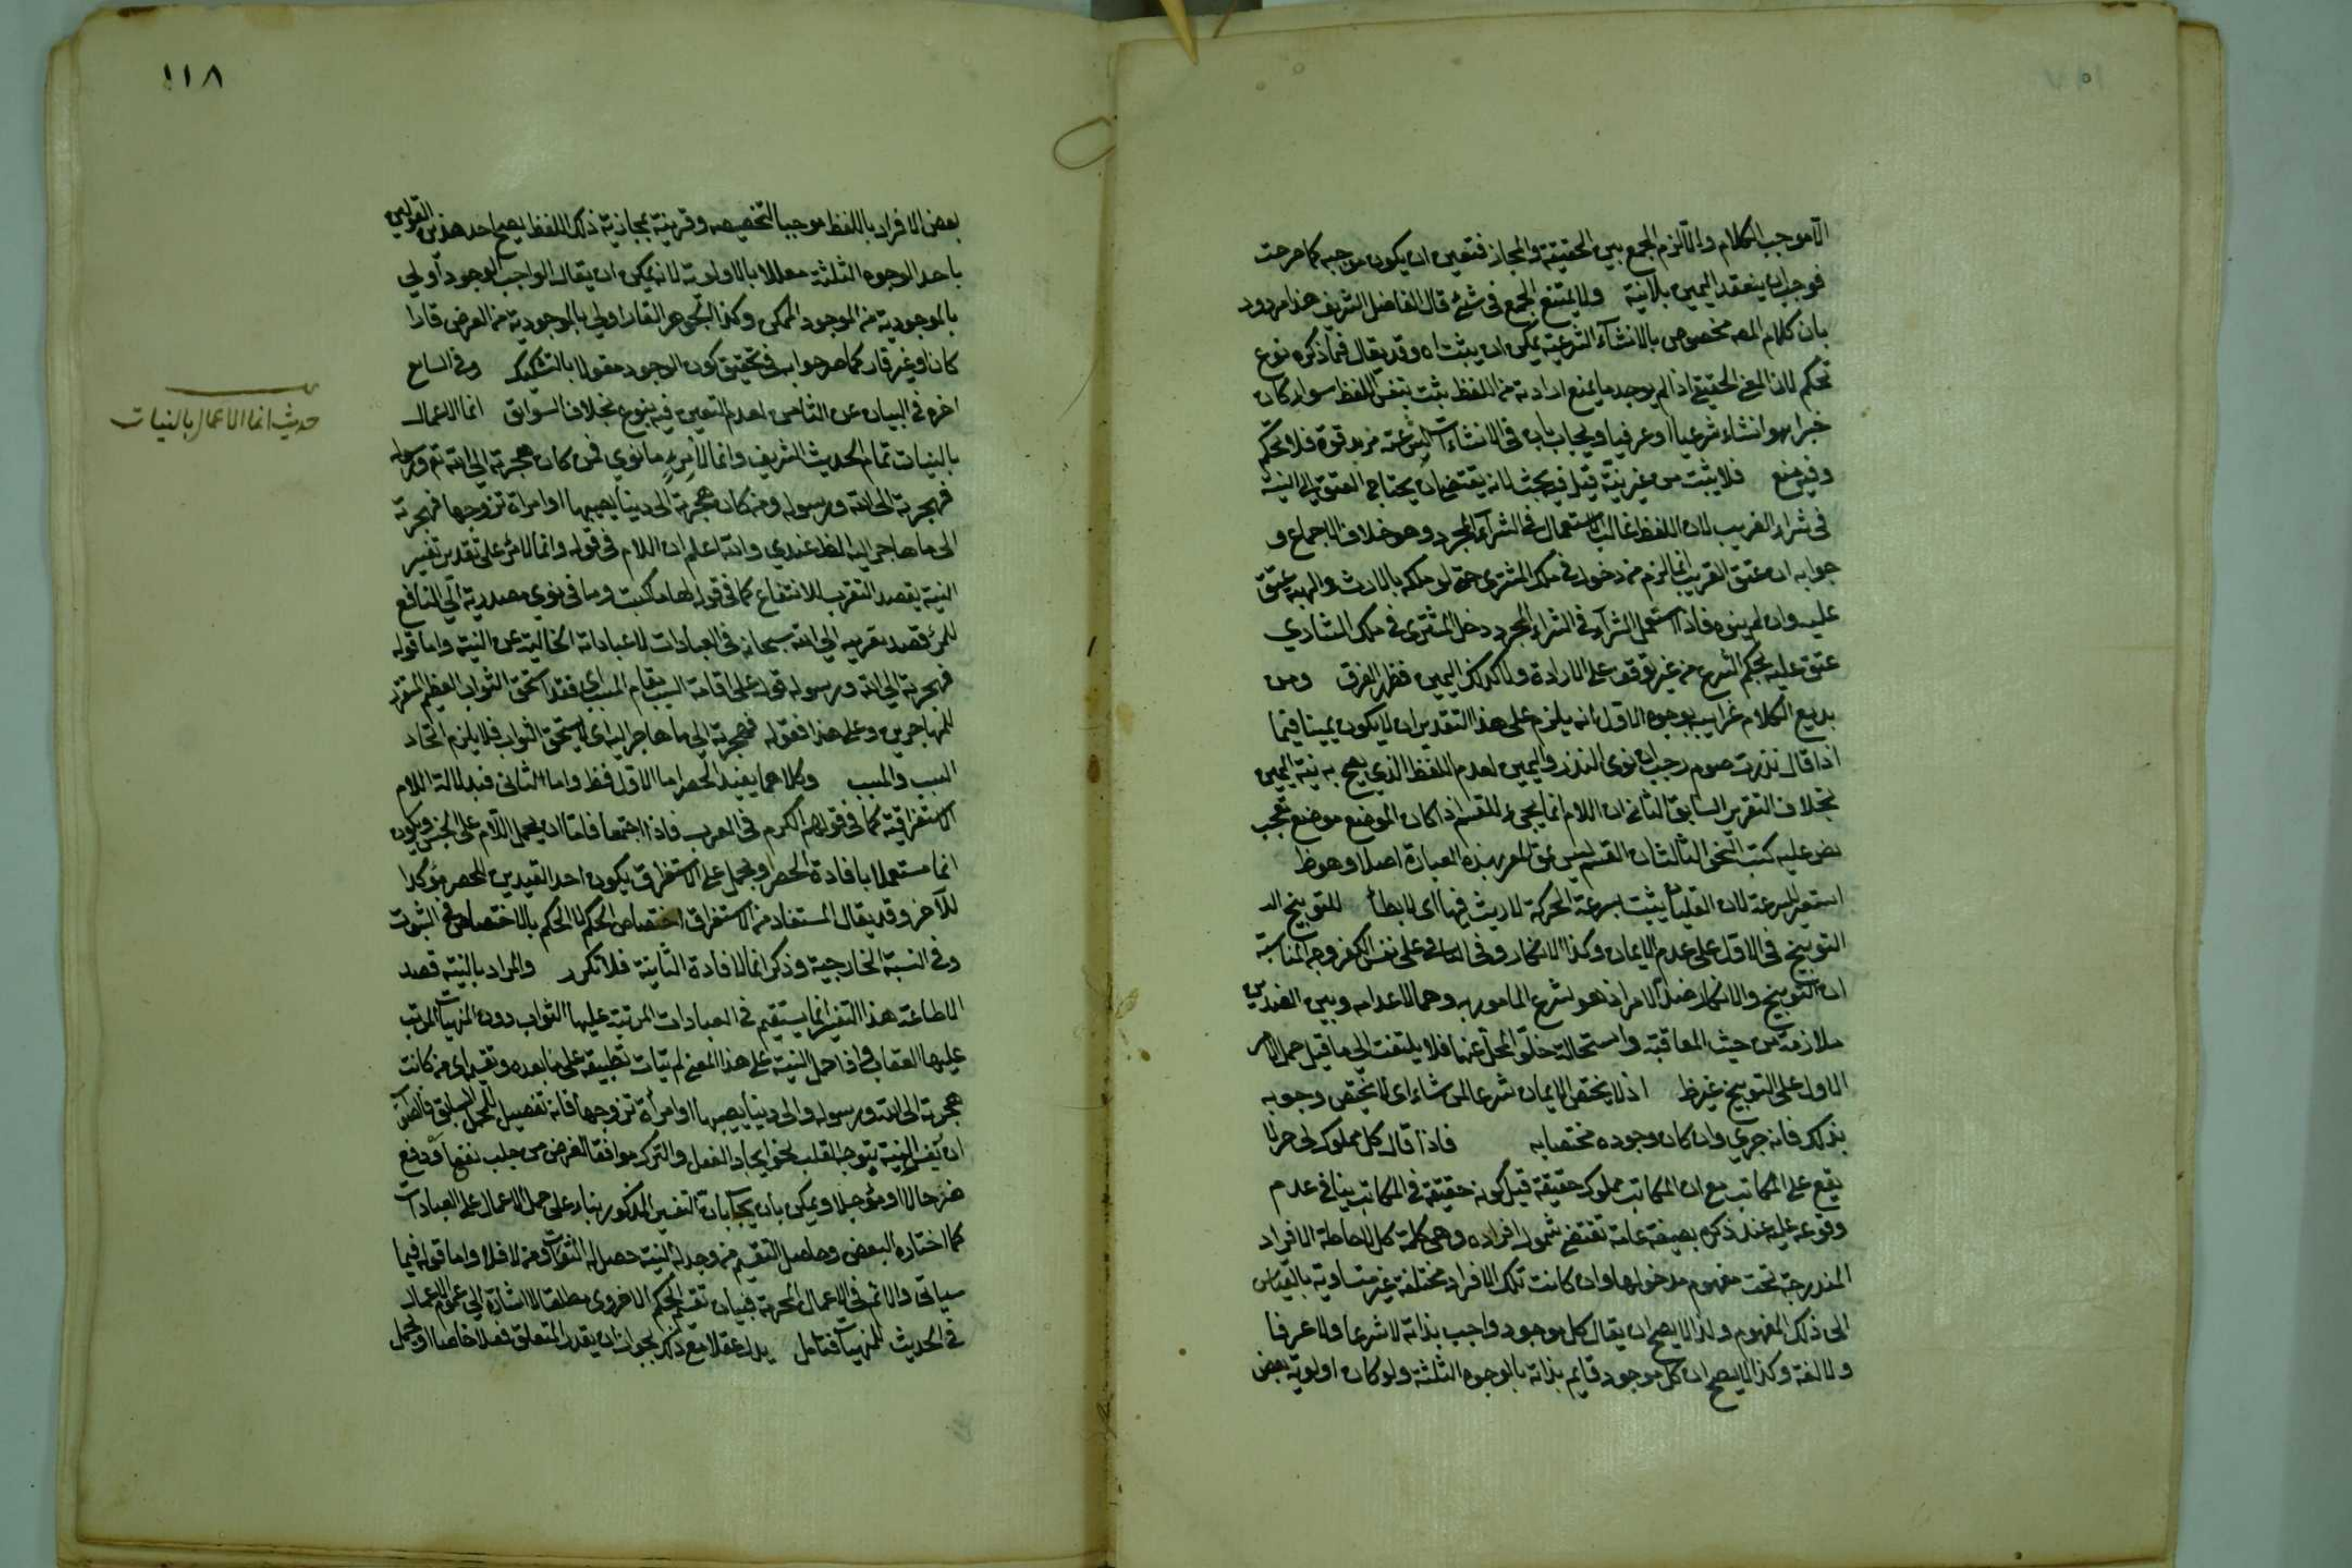 الا موجب الكلام والا لزم الجمع بين الحقيقة والمجاز فتعين ان يكون موجبه كما صرحت
فوجب ان ينعقد اليمين بلا نية ولا يمتنع الجمع في شئ قال الفاضل الشريف هذا مردود
بان كلام المص مخصوص بالانشاآء الشرعية يمكن ان يثبت اه وقد يقال فيما ذكره نوع
تحكم لان المعنى الحقيقي اذا لم يوجد ما يمنع ارادته من اللفظ يثبت بنفس اللفظ سواء كان
خبرا او انشاء شرعيا او عرفيا ويجاب بان في الانشاءات الشرعية مزيد قوة فلا تحكم
وفيه منع فلا يثبت من غير نية قيل فيه بحث لانه يقتضي ان يحتاج العتق الى النية
في شراء القريب لان اللفظ غالب الاستعمال في الشرآء المجرد وهو خلاف الاجماع و
جوابه ان عتق القريب انما لزم من دخوله في ملك المشترى حتى لو ملكه بالارث والهبة عتق
عليه وان لم ينوه فاذا استعمل الشرآء في الشراء المجرد دخل المشترى في ملك الشاري
عتق عليه بحكم الشرع من غير توقف على الارادة ولا كذلك اليمين فظهر الفرق ومن
بديع الكلام غرايب بوجوه الاول انه يلزم على هذا التقدير ان لا يكون يمينا فيما
اذا قال نذرت صوم رجب ان نوى النذر واليمين لعدم اللفظ الذي يصح به نية اليمين
بخلاف التقرير السابق الثاني ان اللام انما يجيء للقسم اذا كان الموضع موضع تعجب
نص عليه كتب النحو الثالث ان القسم ليس نحو لعمر بهذه العبارة اصلا وهو ظ
استعير للسرعة لان الغليان يثبت بسرعة الحركة لا ريث فيها اى لا بطأ للتوبيخ الد
التوبيخ في الاول على عدم الايمان وكذا الانكار وفي الثاني على نفس الكفر وجه المناسبة
ان التوبيخ والانكار ضد الامر اذ هو لشرع المامور به وهما لاعدامه وبين الضدين
ملازمة من حيث المعاقبة واستحالة خلو المحل عنهما فلا يلتفت الى ما قيل حمل الامر
الاول على التوبيخ غير ظ اذ لا يختص الايمان شرعا لمن شاء اى لا يختص وجوبه
بذلك فانه جرى وان كان وجوده مختصا به فاذا قال كل مملوك لى حر لا
يقع على المكاتب مع ان المكاتب مملوك حقيقة قيل كونه حقيقة في المكاتب ينافي عدم
وقوعه عليه عند ذكره بصيغة عامة تقتضي شمول افراده وهي كلمة كل لاحاطة الافراد
المندرجة تحت مفهوم مدخولها وان كانت تلك الافراد مختلفة غير متساوية بالقياس
الى ذلك المفهوم ولذا لا يصح ان يقال كل موجود واجب بذاته لا شرعا ولا عرفا
ولا لغة وكذا لا يصح ان كل موجود قايم بذاته بالوجوه الثلثة ولو كان اولوية بعض
١١٨
بعض الافراد باللفظ موجبا لتخصيصه وقرينة مجازية ذلك اللفظ يصح احد هذين القولين
باحد الوجوه الثلثة معللا بالاولوية لانه يمكن ان يقال الواجب الوجود اولى
بالموجودية من الموجود الممكن وكذا الجوهر القار اولى بالموجودية من العرض قارا
كان او غير قار كما صرحوا به في تحقيق كون الوجود مقولا بالتشكيك وفي السابع
اخره في البيان عن الثامن لعدم التعين فيه بنوع بخلاف السوابق انما الاعمال
بالنيات تمام الحديث الشريف وانما لامرئ ما نوى فمن كان هجرته الى الله تع ورسوله
فهجرته الى الله ورسوله ومن كان هجرته الى دنيا يصيبها او امراة تزوجها فهجرته
الى ما هاجر اليه الظ عندي والله اعلم ان اللام في قوله وانما لامرئ على تقدير تفسير
النية بقصد التقرب للانتفاع كما في قوله لها ما كسبت وما في نوى مصدرية اى النافع
للمرء قصد تقربه الى الله سبحانه في العبادات لا عباداته الخالية عن النية واما قوله
فهجرته الى الله ورسوله قوله على اقامة السبب مقام المسبب اى فقد استحق الثواب العظيم المقرر
للمهاجرين وعلى هذا فقوله فهجرته الى ما هاجر اليه اى لا يستحق الثواب فلا يلزم اتحاد
السبب والمسبب وكلاهما يفيد الحصر اما الاول فظ واما الثاني فبدلالة اللام
الاستغراقية كما في قولهم الكرم في العرب فاذا اجتمعا فاما ان يحمل اللام على الجنس ويكون
انما مستعملا بافادة الحصر او يحمل على الاستغراق ويكون احد القيدين للحصر مؤكدا
للآخر وقد يقال المستفاد من الاستغراق اختصاص الحكم لا الحكم بالاختصاص في الثبوت
وفي النسبة الخارجية وذكر انما لافادة الثانية فلا تكرر والمراد بالنية قصد
الطاعة هذا التفسير انما يستقيم في العبادات المرتبة عليها الثواب دون المنهيات المرتب
عليها العقاب واذا حمل النية على هذا المعنى لم يتات تطبيقه على ما بعده وتقسيمه اى من كانت
هجرته الى الله ورسوله والى دنيا يصيبها او امرأة تزوجها فانه تفصيل للمجمل السابق فالصواب
ان يفسر النية بتوجه القلب نحو ايجاد الفعل والترك موافقا لغرض من جلب نفع او دفع
ضر حالا او مؤجلا ويمكن بان يجاب بان التفسير المذكور بناء على حمل الاعمال على العبادات
كما اختاره البعض وحاصل التقسيم من وجد له النية حصل له الثواب ومن لا فلا واما قوله فيما
سياتى والاثم في الاعمال المحرمة فبيان تقسيم الحكم الاخروى مطلقا لا اشارة الى عموم الاعمال
في الحديث للمنهيات فتامل يدل عقلا مع ذلك يجوز ان يقدر المتعلق فعلا خاصا او يحمل
حديث انما الاعمال بالنيات